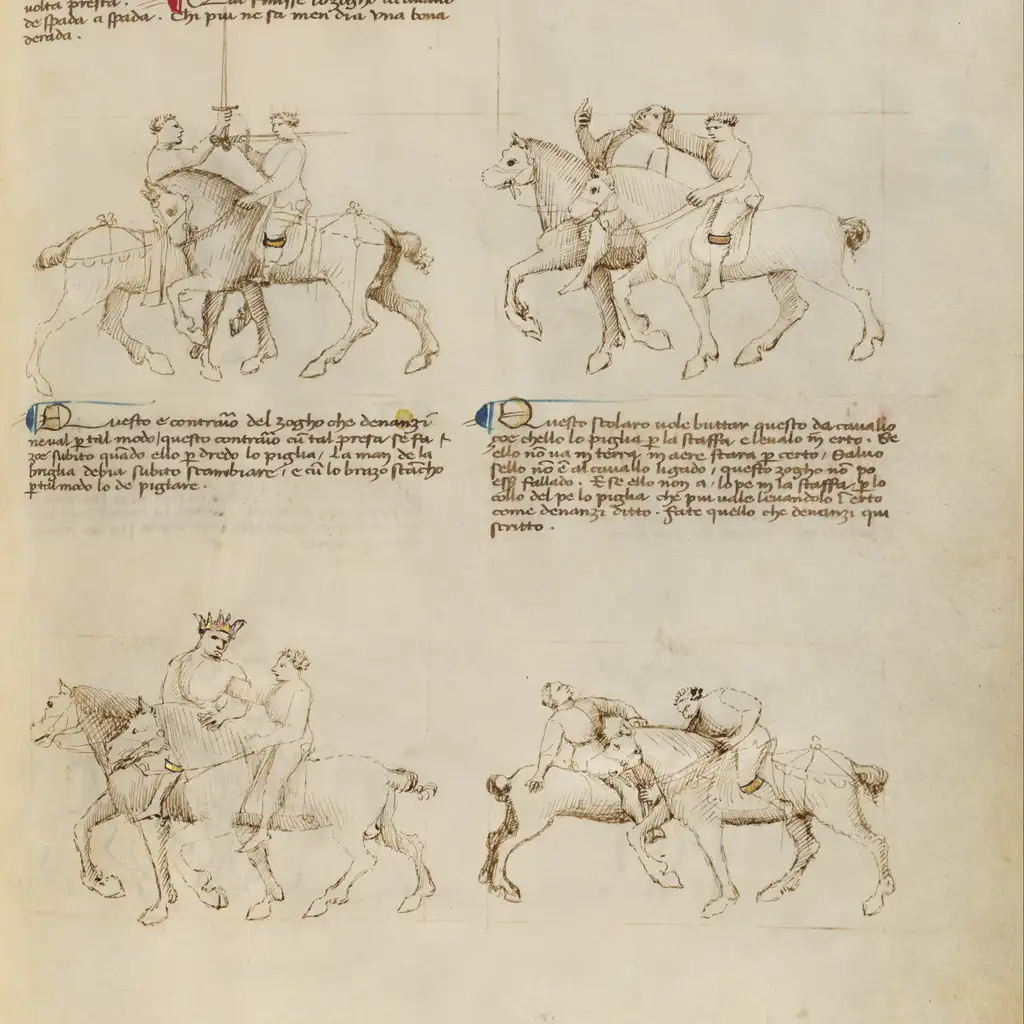 volta presta.
Qui finisse lo zogho
de spada a spada. Chi piu ne sa men dia una bona
derada.
Questo e contrario del zogho che denanzi
ne val p tal modo / questo contrario cu tal presa se fa /
zoe subito quado ello p dredo lo piglia / La man de la
briglia debia subito scambiare / e cu lo brazo
p tal modo lo de pigliare.
Questo scolaro vole buttar questo da cavallo
zoe chello lo piglia p la staffa e levalo in erto. Se
ello no va in terra in aere stara p certo / Salvo
sello no e al cavallo ligado / questo zogho no po
esser fallado. E se ello non a lo pe in la staffa p lo
collo del pe lo piglia che piu vale levandolo erto
come denanzi ditto. Fate quello che denanzi qui
scritto.